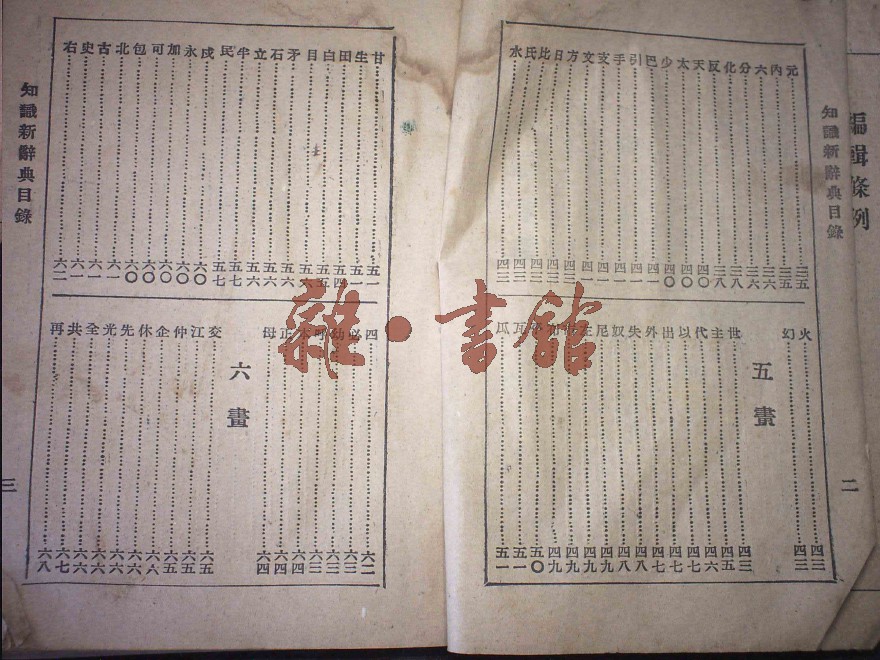 編輯條例
知識新辭典目錄
二
元 三五
内 三五
六 三六
分 三六
化 三八
反 三八
天 四〇
太 四〇
少 四〇
巴 四一
引 四一
手 四一
支 四一
文 四一
方
日
比
氏
水
火 四三
幻 四三
五畫
世 四三
主 四五
代 四六
以 四七
出 四七
外 四七
失 四八
奴 四八
尼 四九
左 四九
四九
四九
五〇
瓦 五一
瓜 五一
甘 五一
生 五一
田 五四
白 五五
目 五六
矛 五六
石 五六
立 五六
半 五七
民 五七
六〇
永 六〇
加 六〇
可 六〇
包 六〇
北 六一
古 六一
史 六一
右 六二
四 六二
必 六三
幼 六三
六三
本 六四
正 六四
母 六四
六畫
交 六五
江 六五
仲 六五
企 六五
休 六六
先 六六
光 六六
全 六六
共 六七
再 六八
知識新辭典目錄
三
雜·書館